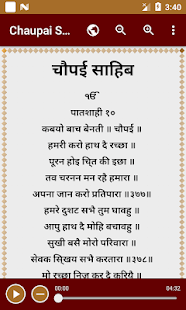 3:40
Chaupai S...
चौपई साहिब
ੴ
पातशाही १०
कबयो बाच बेनती ॥ चौपई ॥
हमरी करो हाथ दै रच्छा ॥
पूरन होइ चि्त की इछा ॥
तव चरनन मन रहै हमारा ॥
अपना जान करो प्रतिपारा ॥३७७॥
हमरे दुशट सभै तुम घावहु ॥
आपु हाथ दै मोहि बचावहु ॥
सुखी बसै मोरो परिवारा ॥
सेवक सि्खय सभै करतारा ॥३७८॥
मो रच्छा निजु कर दै करियै ॥
00:00
04:32